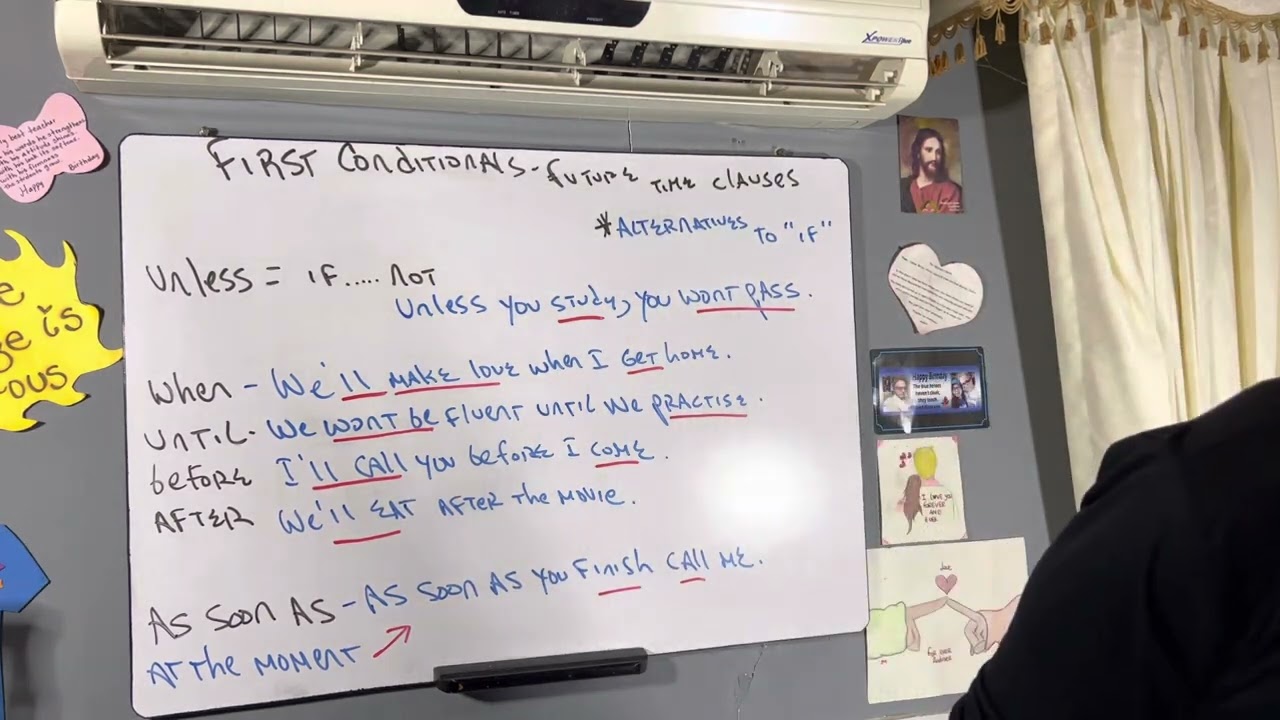 XPOWER Plus
FIRST CONDITIONALS - FUTURE TIME CLAUSES
*ALTERNATIVES TO "IF"
UNLESS = IF..... NOT
UNLESS YOU STUDY, YOU WONT PASS.
WHEN - WE'LL MAKE LOVE WHEN I GET HOME.
UNTIL - WE WONT BE FLUENT UNTIL WE PRACTISE.
BEFORE I'LL CALL YOU BEFORE I COME.
AFTER WE'LL EAT AFTER THE MOVIE.
AS SOON AS - AS SOON AS YOU FINISH CALL ME.
AT THE MOMENT
best teacher
Happy Birthday
is
Happy Birthday
I love you
FOREVER
AND
EVER
love